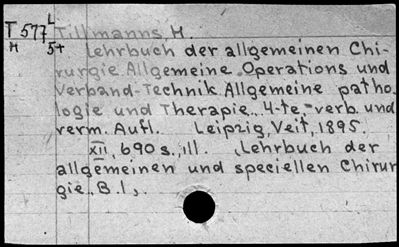 T577L Tillmanns, H.
H 5+ Lehrbuch der allgemeinen Chi-
rurgie. Allgemeine Operations und
Verband-Technik Allgemeine patho.
logie und Therapie. 4-te, verb. und
verm. Aufl. Leipzig, Veit, 1895.
XII, 690 s., ill. (Lehrbuch der
allgemeinen und speciellen Chirur
gie, B. 1,.